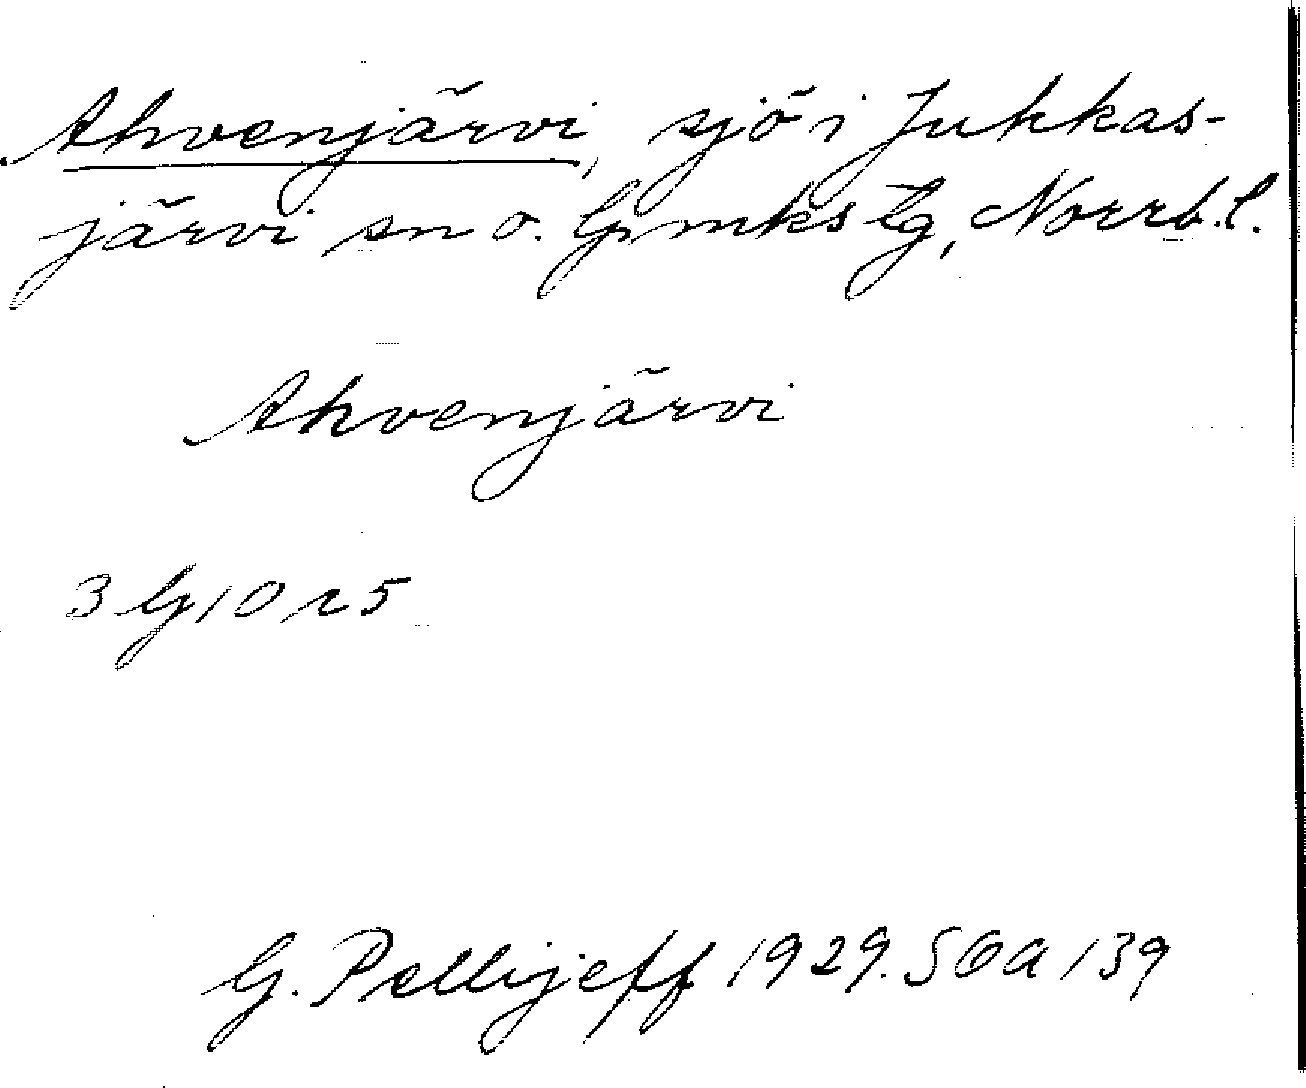 Ahvenjärvi, sjö i Jukkas-
järvi sn o. Gmks lg, Norrb. l.
Ahvenjärvi
3 G 10 r 5
G. Pellijeff 1929. SOA 139